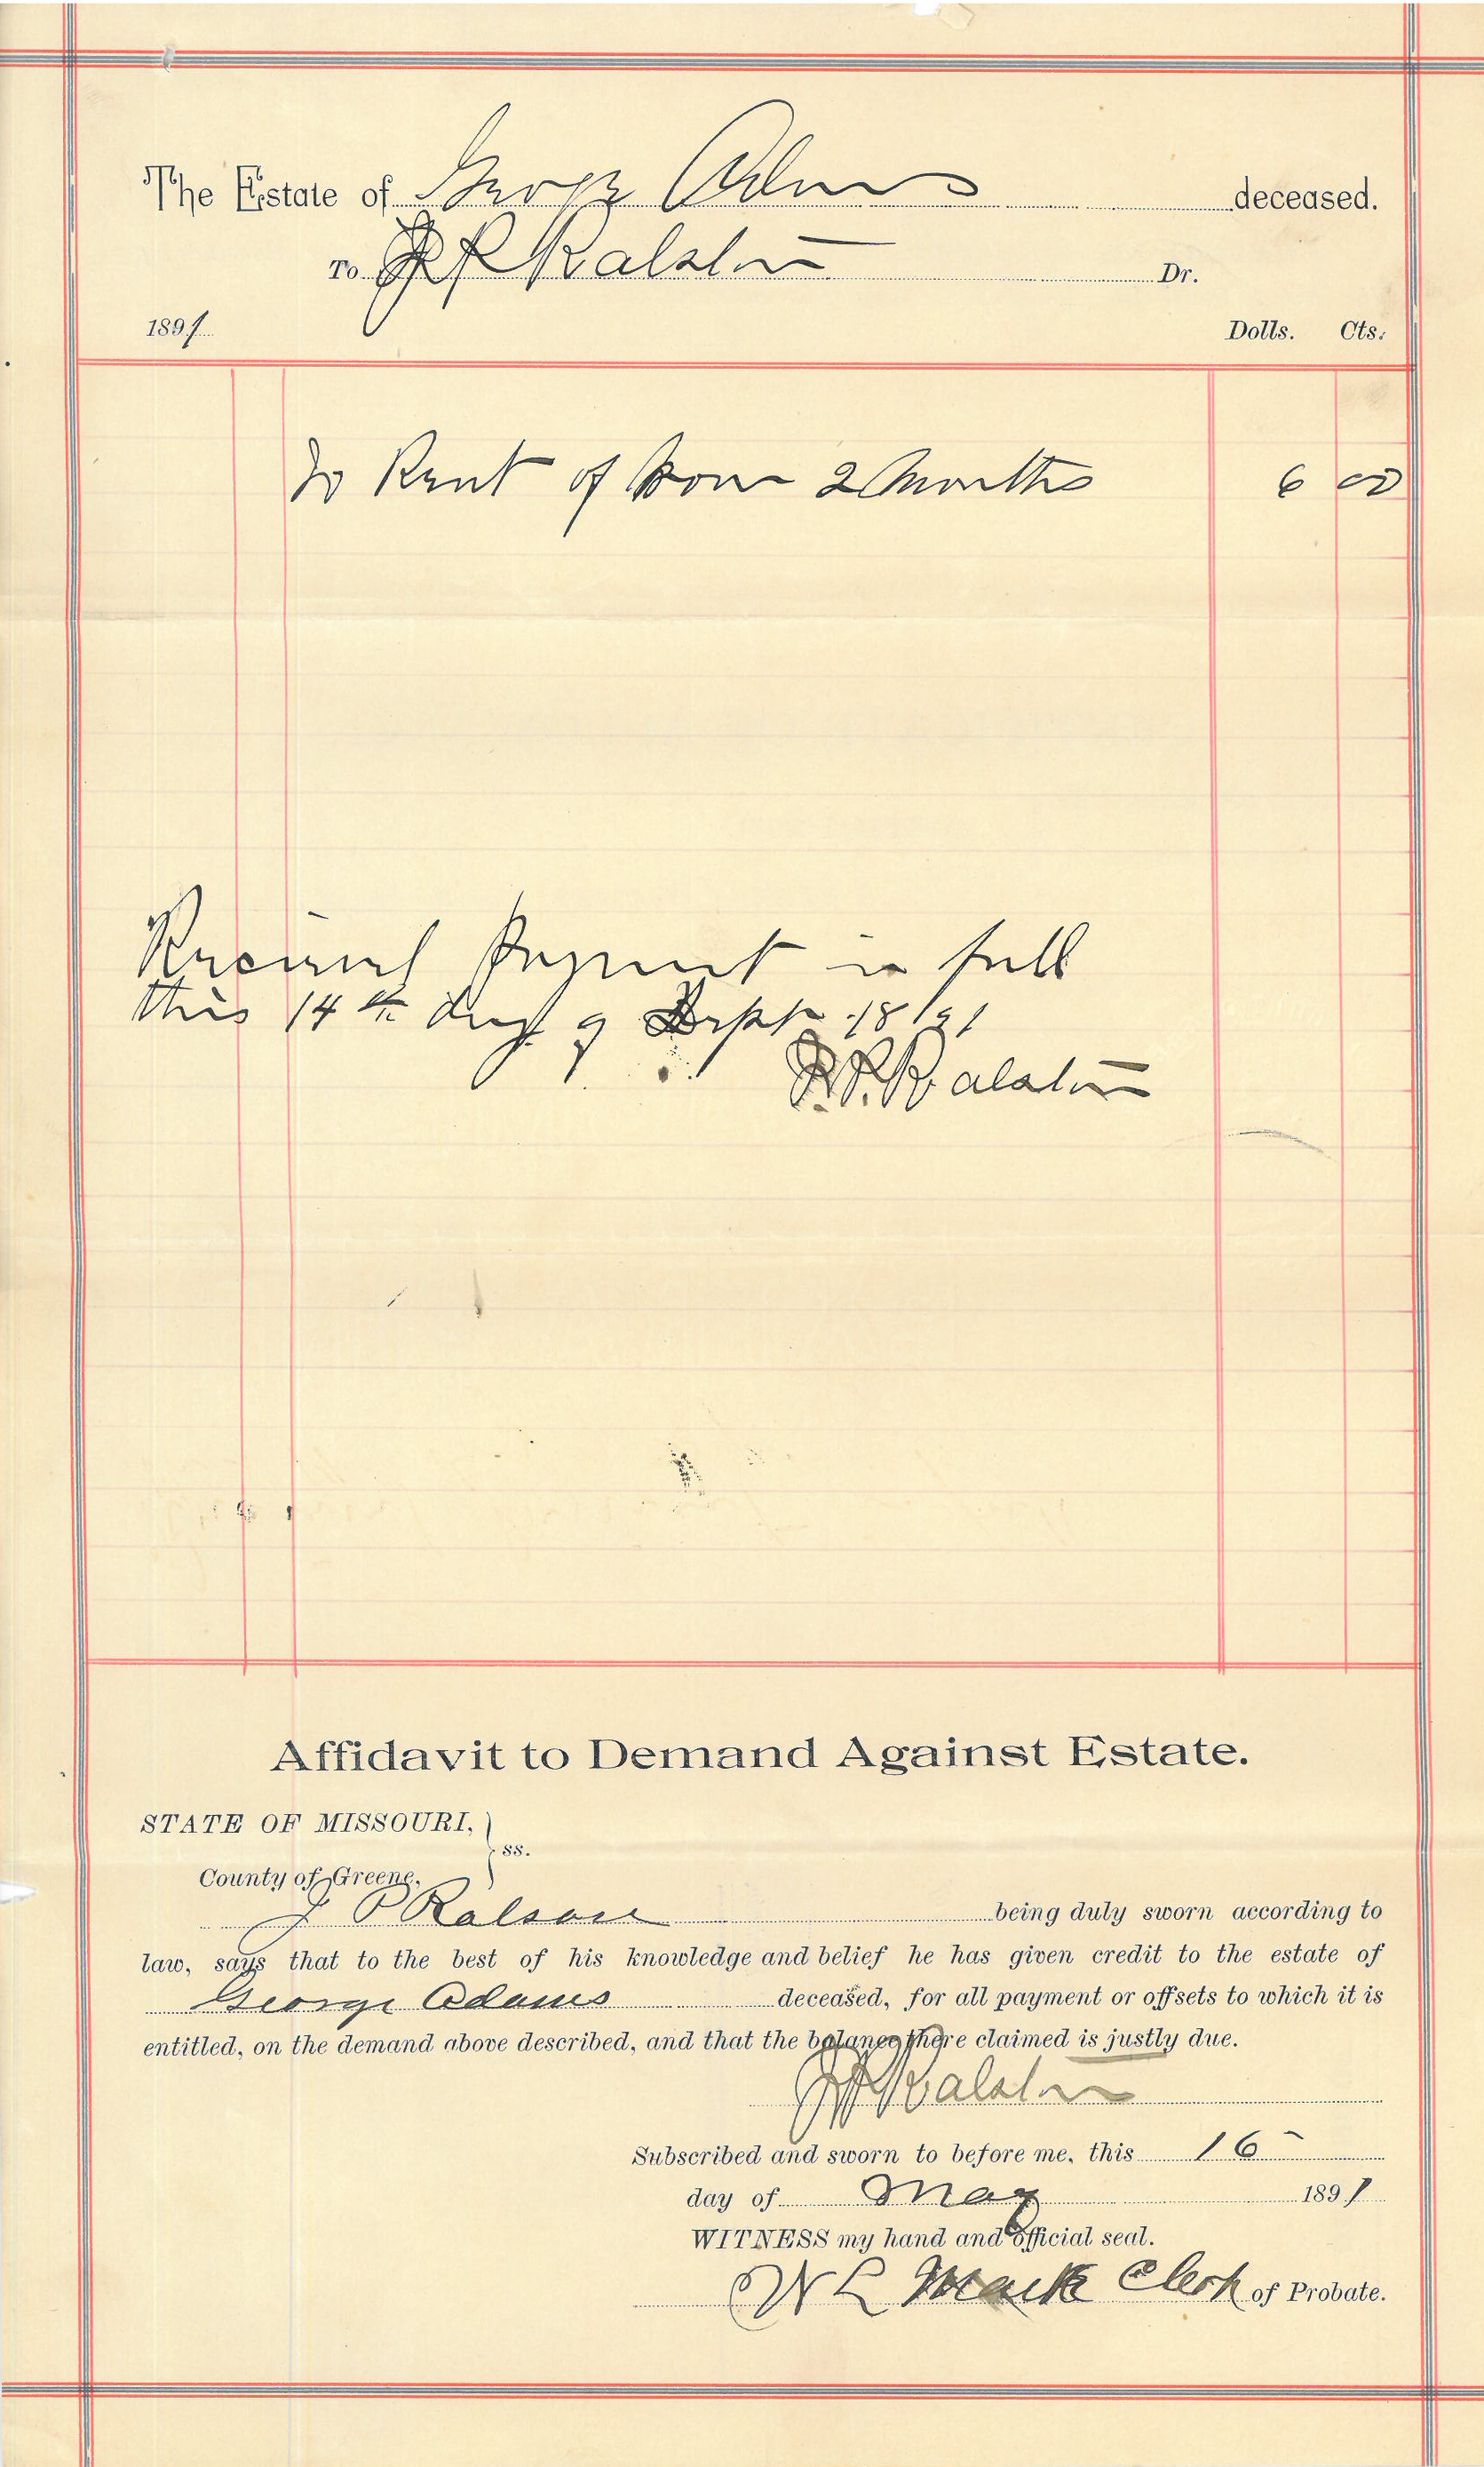 The Estate of George Adams deceased.
To J P Ralston Dr.
1891 Dolls. Cts.
To Rent of Room 2 Months 6 00
Received Payment in full
this 14th day of Sept 1891
J. P. Ralston
Affidavit to Demand Against Estate.
STATE OF MISSOURI, } ss.
County of Greene,
J P Ralson being duly sworn according to
law, says that to the best of his knowledge and belief he has given credit to the estate of
George Adams deceased, for all payment or offsets to which it is
entitled, on the demand above described, and that the balance there claimed is justly due.
J P Ralston
Subscribed and sworn to before me, this 16
day of May 1891
WITNESS my hand and official seal.
Clerk of Probate.